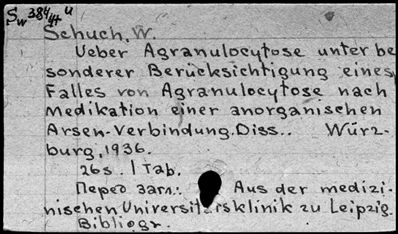 Sw 384/41 u
Schuch, W.
Ueber Agranulocytose unter be
sonderer Berücksichtigung eines
Falles von Agranulocytose nach
Medikation einer anorganischen
Arsen-Verbindung. Diss.. Würz-
burg, 1936.
26s. 1 Tab.
Перед загл.: Aus der medizi-
nischen Universitätsklinik zu Leipzig.
Bibliogr.